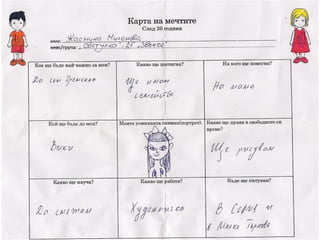 Карта на мечтите
След 20 години
име: Жасмина Миленова
клас/група: ДГ „Звънче“
Кое ще бъде най-важно за мен?
Какво ще постигна?
На кого ще помогна?
До съм
Ще имам
семейство
На мама
Кой ще бъде до мен?
Моята усмихната снимка(портрет).
Какво ще правя в свободното си
време?
Вики
Ще рисувам
Какво ще науча?
Какво ще работя?
Къде ще пътувам?
Да смятам
Художничка
В София и
в Велико Търново